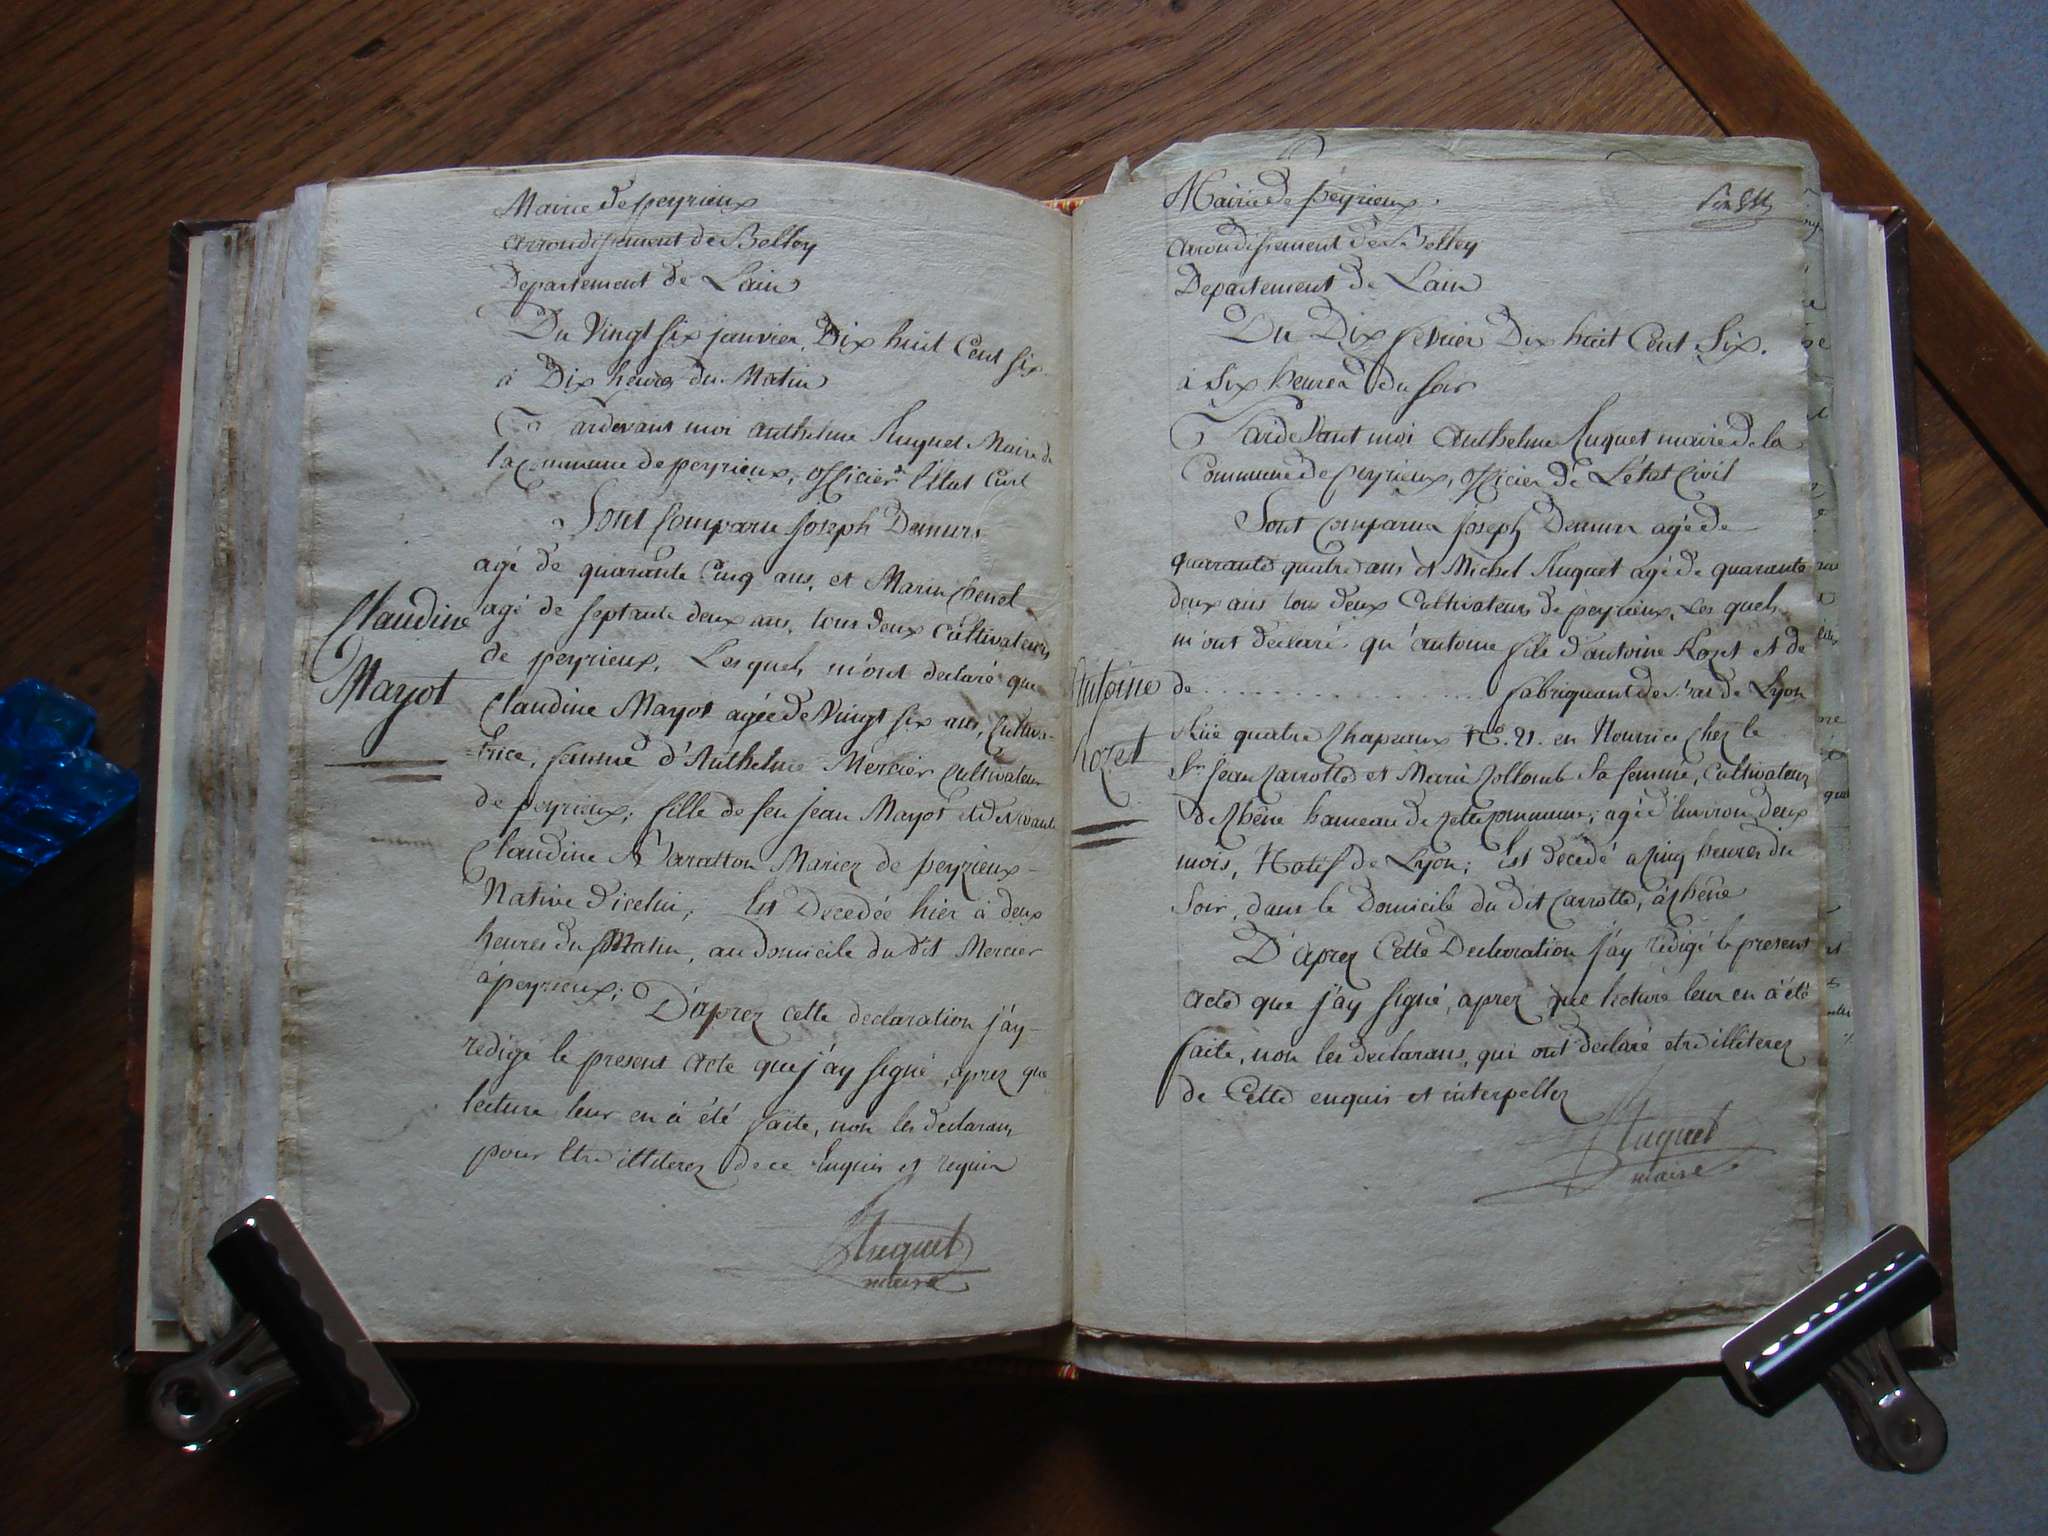 Mairie de peyrieux
arrondissement de Belley
Département de Lain
Du Vingt six janvier, Dix huit Cent six
à Dix heures du Matin
Pardevant moi anthelme Huguet Maire de
la Commune de peyrieux, officier de l'état Civil
Sont Comparu Joseph Demurs
agé de quarante Cinq ans, et Marin Chenel
agé de septante deux ans, tous deux cultivateurs
de peyrieux, Lesquels m'ont declaré que
Claudine Mayot agée de Vingt six ans, Cultiva-
-trice, femme d'Anthelme Mercier Cultivateur
de peyrieux; fille de feu jean Mayot et de vivante
Claudine Maratton Mariez de peyrieux
Native d'icelui, Est Decedée hier à deux
heures du Matin, au domicile du dit Mercier
à peyrieux; D'aprez cette declaration j'ay
redigé le present acte que j'ay signé, aprez que
lecture leur en à été faite, non les declarans
pour Etre illiterez de ce Enquis et requis
Huguet
maire
Claudine
Mayot
Mairie de peyrieux.
arrondissement de Belley
Departement de Lain
Du Dix fevrier Dix huit Cent Six.
à Six heures du soir
Pardevant moi Anthelme Huguet maire de la
Commune de Peyrieux, officier de L'état Civil
Sont comparus Joseph Demurs agé de
quarante quatre ans et Michel Huguet agé de quarante
deux ans tous deux Cultivateurs de peyrieux, Les quels
m'ont declaré qu'antoine fils d'antoine Rozet et de
de . . . . . . . . . . fabriquant de bas de Lyon
Rüe quatre Chapeaux No. 21. en Nourrice chez le
Sr. Jean Carrotte et Marie Collomb Sa femme, Cultivateurs
de Chêne hameau de cette commune; agé d'Environ deux
mois, Natif de Lyon; Est decedé a Cinq heures du
Soir, dans le Domicile du dit Carrotte, à Chêne
D'aprez Cette Declaration j'ay redigé le present
acte que j'ay signé, aprez que lecture leur en à été
faite, non les declarans, qui ont declaré etre illiterez
de Cette enquis et interpellez
Huguet
maire
Antoine
Rozet